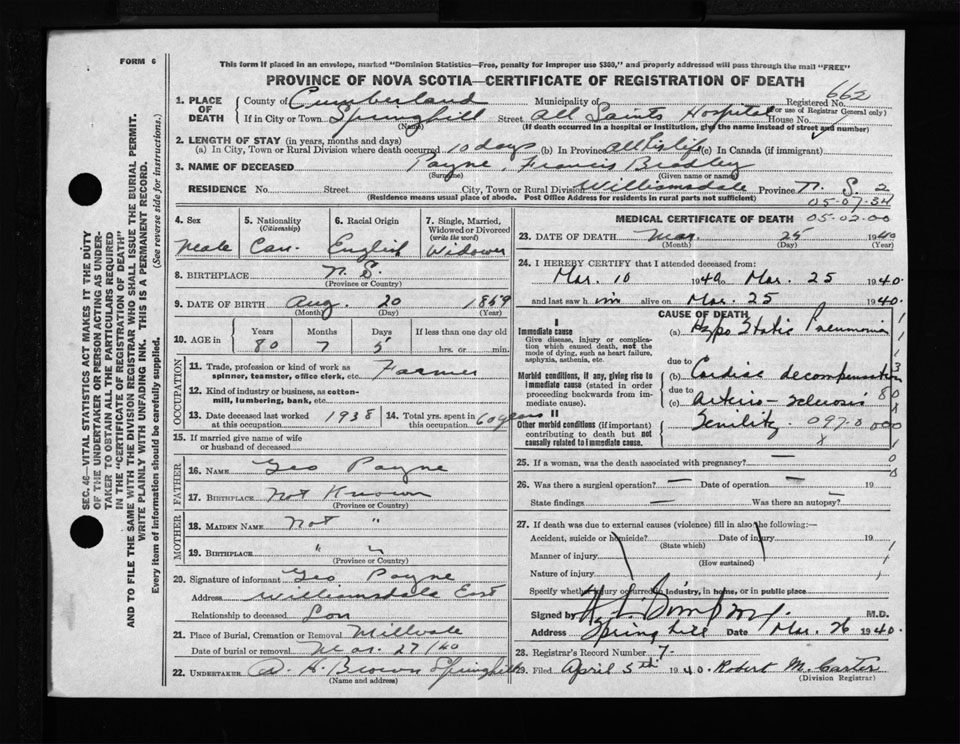 FORM 6
This form if placed in an envelope, marked "Dominion Statistics—Free, penalty for improper use $300," and properly addressed will pass through the mail "FREE"
PROVINCE OF NOVA SCOTIA—CERTIFICATE OF REGISTRATION OF DEATH
662
1. PLACE OF DEATH
County of Cumberland Municipality of Registered No.
(For use of Registrar General only)
If in City or Town Springhill Street All Saints Hospital House No.
(Name) (If death occurred in a hospital or institution, give the name instead of street and number)
2. LENGTH OF STAY (in years, months and days)
(a) In City, Town or Rural Division where death occurred 10 days (b) In Province all his life (c) In Canada (if immigrant)
3. NAME OF DECEASED Payne, Francis Bradley
(Surname) (Given name or names)
RESIDENCE No. Street City, Town or Rural Division Williamsdale Province N. S. 2
(Residence means usual place of abode. Post Office Address for residents in rural parts not sufficient)
05-07-34
05-02-00
4. Sex Male
5. Nationality (Citizenship) Can.
6. Racial Origin English
7. Single, Married, Widowed or Divorced (write the word) Widower
8. BIRTHPLACE N. S.
(Province or Country)
9. DATE OF BIRTH Aug. 20 1859
(Month) (Day) (Year)
10. AGE in Years Months Days If less than one day old
80 7 5 hrs. or min.
OCCUPATION
11. Trade, profession or kind of work as spinner, teamster, office clerk, etc. Farmer
12. Kind of industry or business, as cotton-mill, lumbering, bank, etc.
13. Date deceased last worked at this occupation 1938
14. Total yrs. spent in this occupation 60 years
15. If married give name of wife or husband of deceased
FATHER
16. NAME Geo Payne
17. BIRTHPLACE Not Known
(Province or Country)
MOTHER
18. MAIDEN NAME Not "
19. BIRTHPLACE " "
(Province or Country)
20. Signature of informant Geo Payne
Address Williamsdale East
Relationship to deceased Son
21. Place of Burial, Cremation or Removal Millvale
Date of burial or removal Mar. 27/40
22. UNDERTAKER A. H. Brown Springhill
(Name and address)
MEDICAL CERTIFICATE OF DEATH
23. DATE OF DEATH Mar. 25 1940
(Month) (Day) (Year)
24. I HEREBY CERTIFY that I attended deceased from:
Mar. 10 1940 to Mar. 25 1940.
and last saw him alive on Mar. 25 1940.
CAUSE OF DEATH
I
Immediate cause
Give disease, injury or complication which caused death, not the mode of dying, such as heart failure, asphyxia, asthenia, etc.
(a) Hypo Static Pneumonia
due to
Morbid conditions, if any, giving rise to immediate cause (stated in order proceeding backwards from immediate cause).
(b) Cardiac decompensation
due to
(c) Arterio-Sclerosis
II
Other morbid conditions (if important) contributing to death but not causally related to immediate cause.
Senility
25. If a woman, was the death associated with pregnancy? —
26. Was there a surgical operation? — Date of operation — 19
State findings — Was there an autopsy? —
27. If death was due to external causes (violence) fill in also the following:—
Accident, suicide or homicide? Date of injury 19
(State which)
Manner of injury
(How sustained)
Nature of injury
Specify whether injury occurred in industry, in home, or in public place
Signed by M.D.
Address Springhill Date Mar. 26 1940.
28. Registrar's Record Number 7-
29. Filed April 5th 1940. Robert M. Carter
(Division Registrar)
SEC. 46—VITAL STATISTICS ACT MAKES IT THE DUTY OF THE UNDERTAKER OR PERSON ACTING AS UNDERTAKER TO OBTAIN ALL THE PARTICULARS REQUIRED IN THE "CERTIFICATE OF REGISTRATION OF DEATH"
AND TO FILE THE SAME WITH THE DIVISION REGISTRAR WHO SHALL ISSUE THE BURIAL PERMIT.
WRITE PLAINLY WITH UNFADING INK. THIS IS A PERMANENT RECORD.
Every item of Information should be carefully supplied. (See reverse side for instructions.)